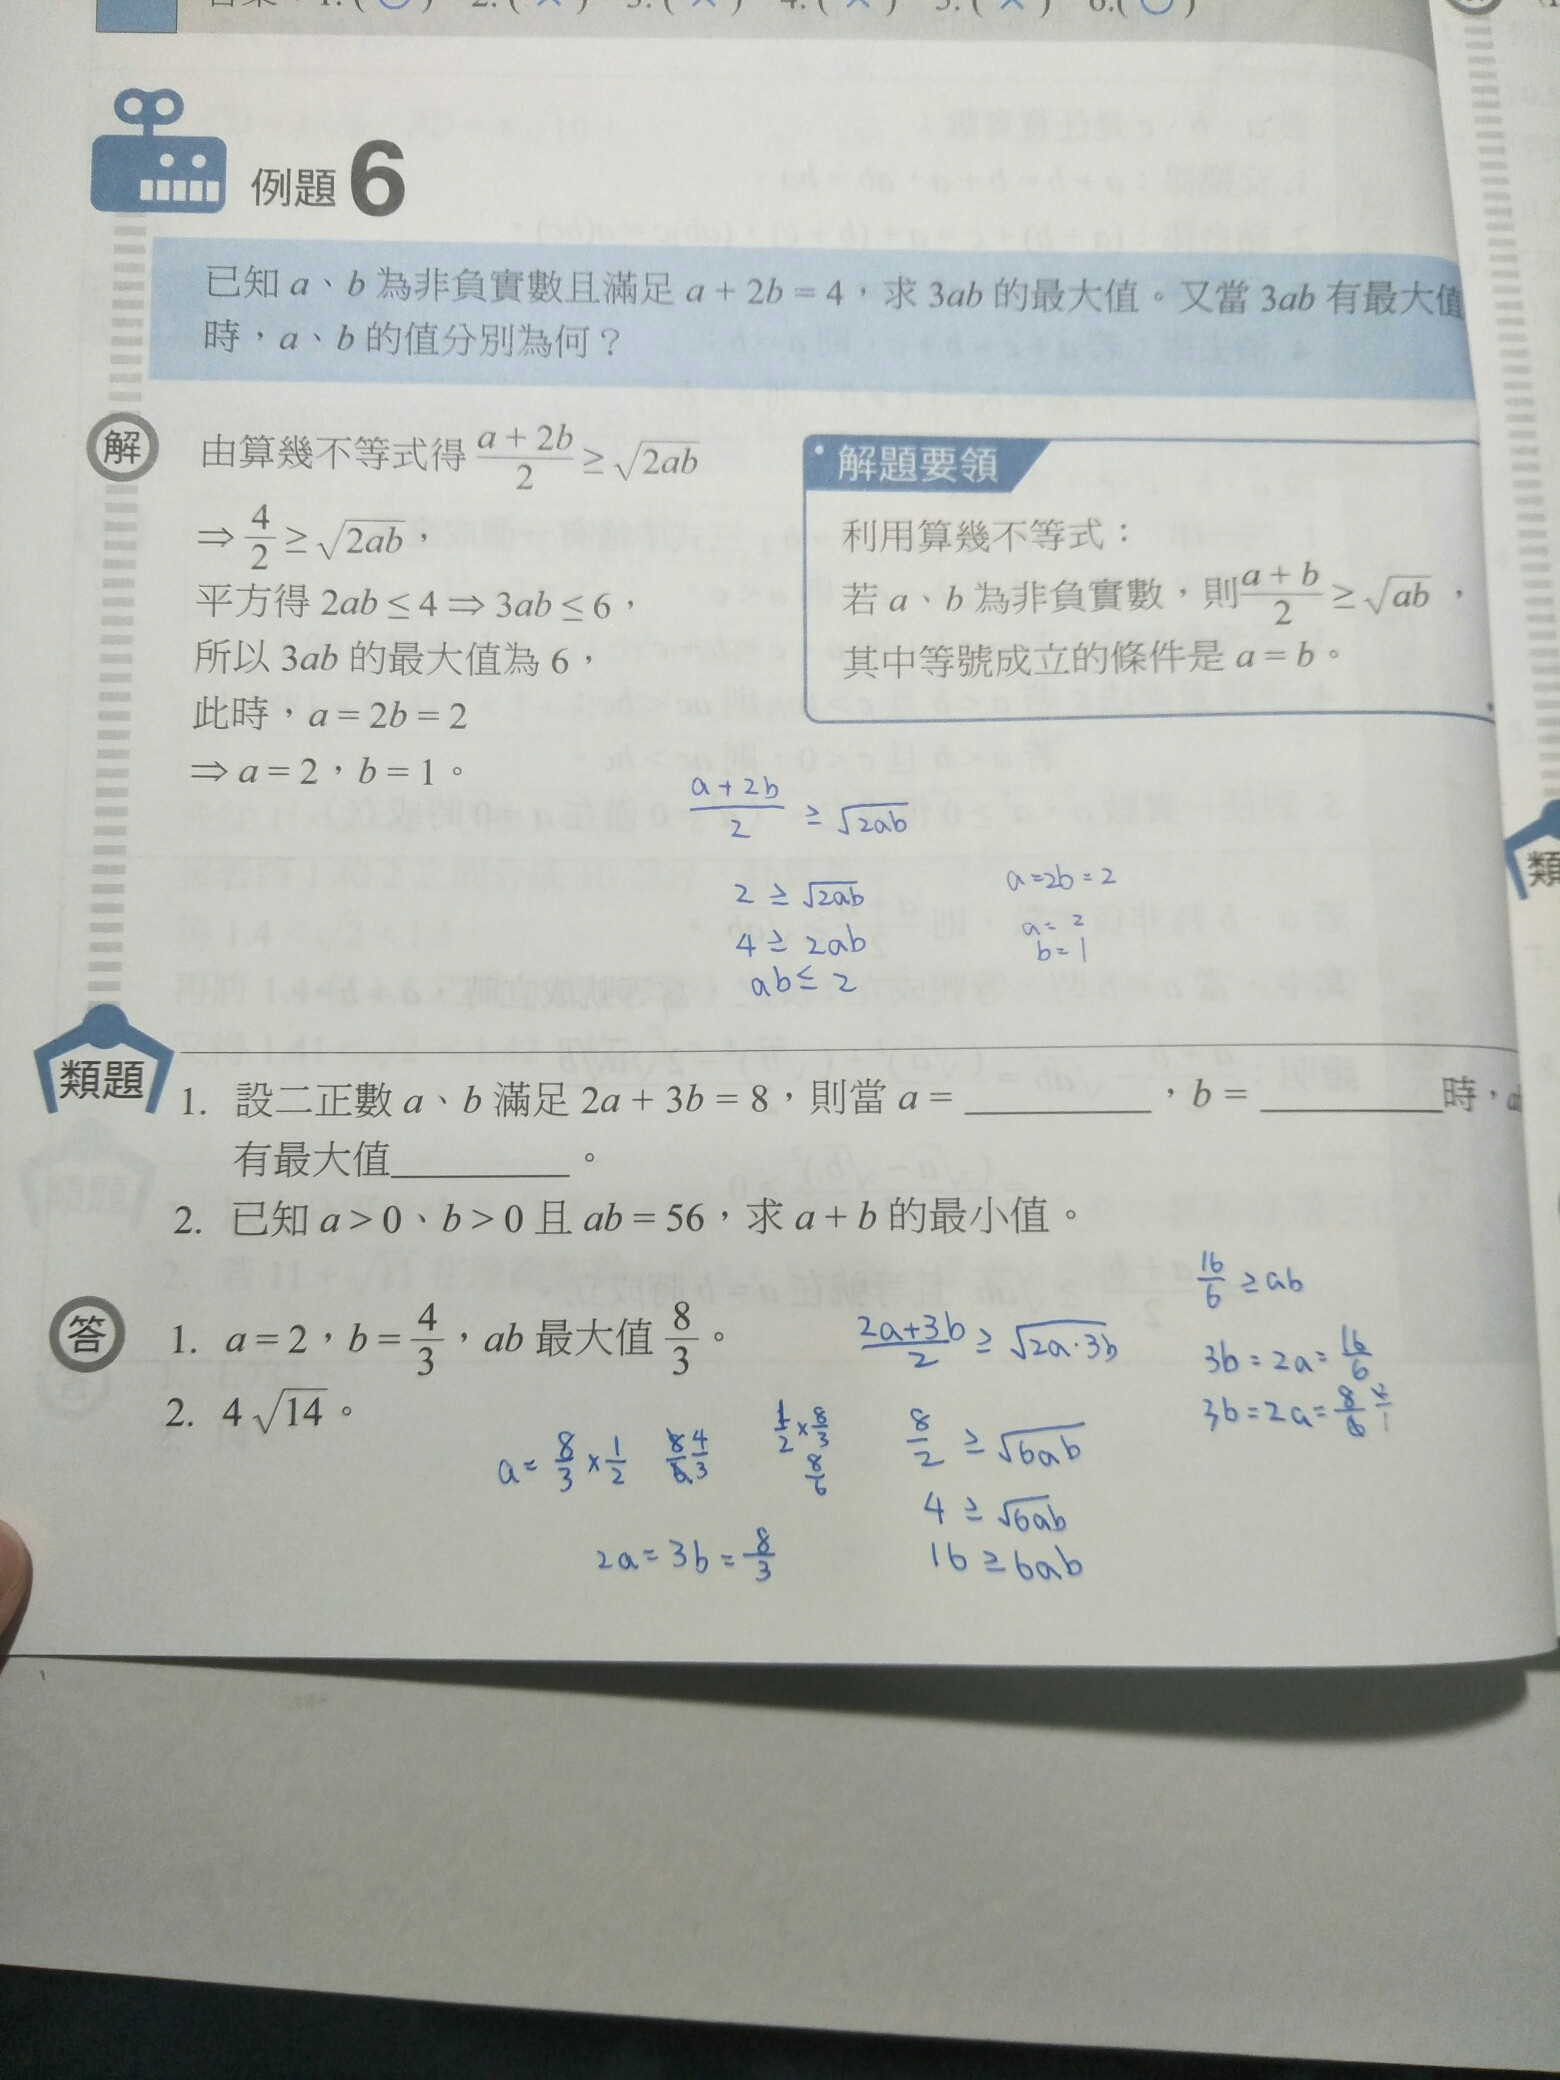 例題 6
已知 a、b 為非負實數且滿足 a + 2b = 4，求 3ab 的最大值。又當 3ab 有最大值
時，a、b 的值分別為何？
解
由算幾不等式得 (a + 2b)/2 ≥ √(2ab)
⇒ 4/2 ≥ √(2ab)，
平方得 2ab ≤ 4 ⇒ 3ab ≤ 6，
所以 3ab 的最大值為 6，
此時，a = 2b = 2
⇒ a = 2，b = 1。
解題要領
利用算幾不等式：
若 a、b 為非負實數，則 (a + b)/2 ≥ √(ab)，
其中等號成立的條件是 a = b。
(a + 2b)/2 ≥ √(2ab)
2 ≥ √(2ab)
4 ≥ 2ab
ab ≤ 2
a = 2b = 2
a = 2
b = 1
類題
1. 設二正數 a、b 滿足 2a + 3b = 8，則當 a = ________，b = ________時，
有最大值________。
2. 已知 a > 0、b > 0 且 ab = 56，求 a + b 的最小值。
答
1. a = 2，b = 4/3，ab 最大值 8/3。
2. 4√14。
(2a+3b)/2 ≥ √(2a·3b)
8/2 ≥ √(6ab)
4 ≥ √(6ab)
16 ≥ 6ab
16/6 ≥ ab
3b = 2a = 16/6
3b = 2a = 8/6
a = 8/3 × 1/2
4/3
1/2 × 8/3
8/6
2a = 3b = 8/3
類